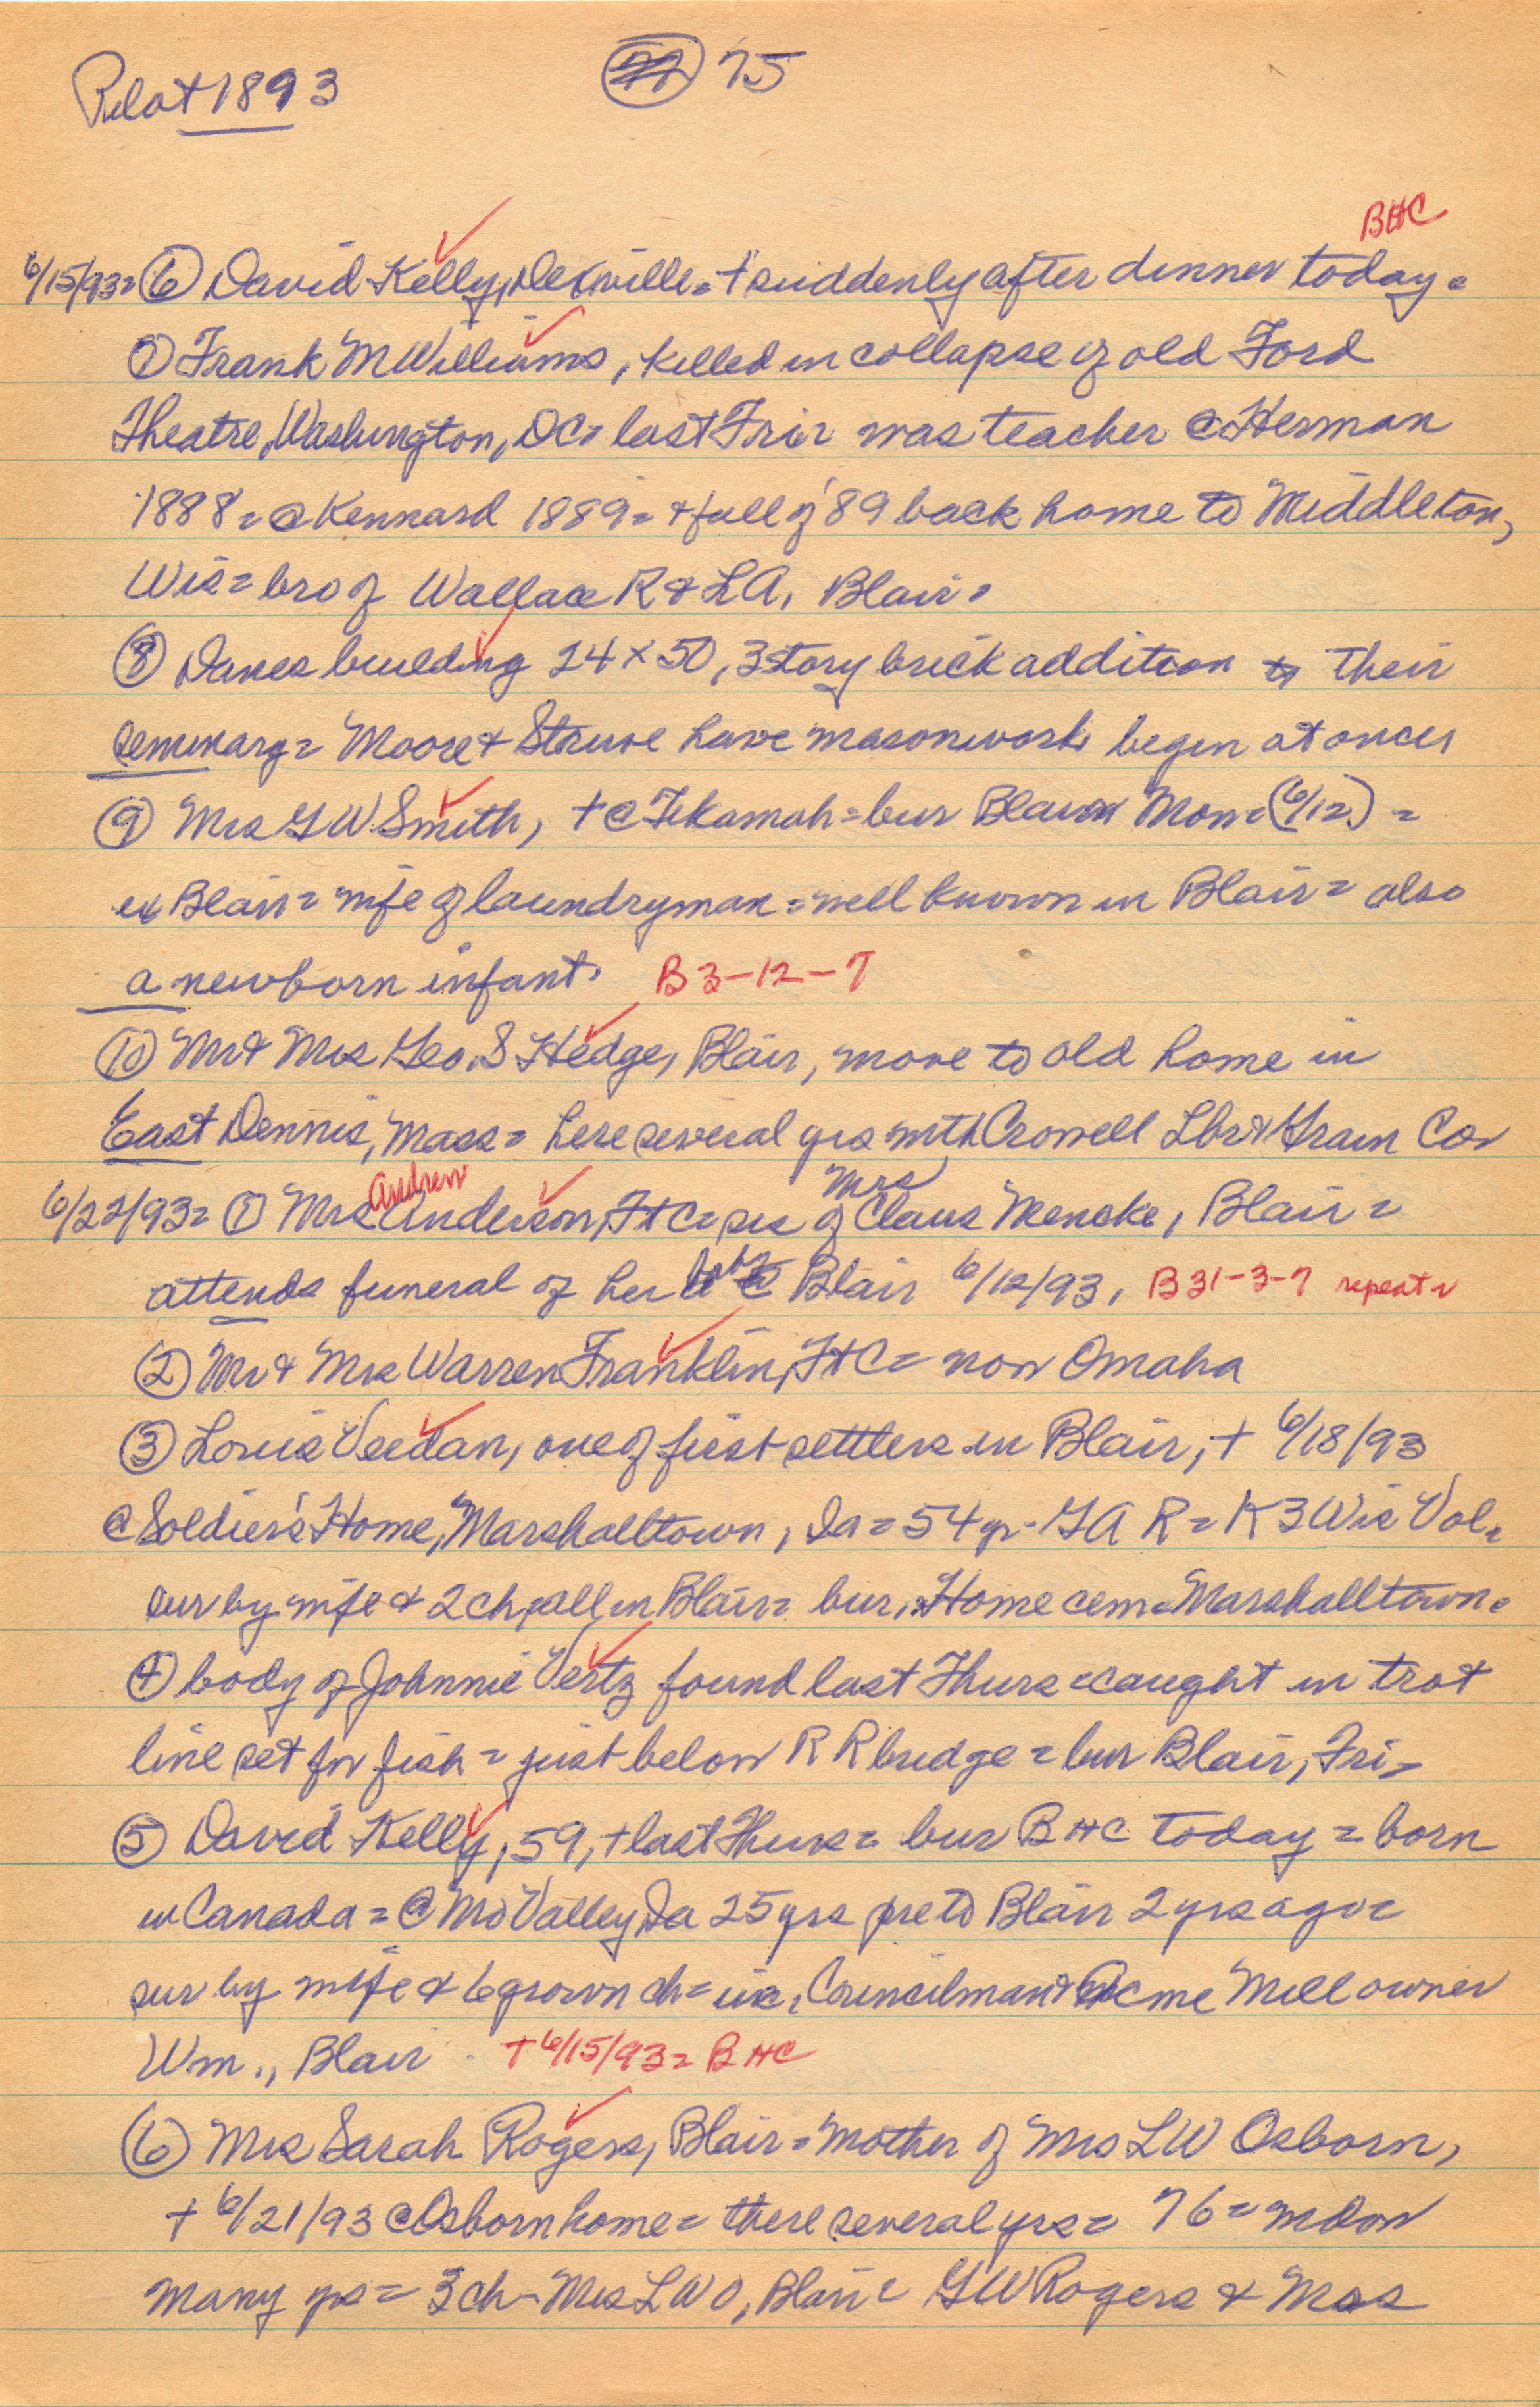 Pilot 1893 75
BHC
6/15/93= ⑥ David Kelly, DeSoville = + suddenly after dinner today =
⑦ Frank M Williams, killed in collapse of old Ford
Theatre, Washington, DC= last Fri= was teacher @ Herman
1888 = @ Kennard 1889 = & fall of '89 back home to Middleton,
Wis = bro of Wallace R & LA, Blair =
⑧ Danes building 24 x 50, 3 story brick addition to their
seminary = Moore & Struve have masonwork, begin at once=
⑨ Mrs GW Smith, + @ Tekamah = bur Blair Mon = (6/12) =
ex Blair = wife of laundryman = well known in Blair = also
a newborn infant. B 3-12-7
⑩ Mr & Mrs Geo. S Hedge, Blair, move to old home in
East Dennis, Mass = here several yrs with Crowell Lbr & Grain Co=
Andrew Mrs
6/22/93= ① Mrs Anderson, FtC= sis of Claus Mencke, Blair =
attends funeral of her baby @ Blair 6/12/93, B 31-3-7 repeat=
② Mr & Mrs Warren Franklin, FtC = now Omaha
③ Louis Veedan, one of first settlers in Blair, + 6/18/93
@ Soldier's Home, Marshalltown, Ia = 54 yr - GAR = K 3 Wis Vol=
sur by wife & 2 ch, all in Blair = bur, Home cem = Marshalltown =
④ body of Johnnie Vertz found last Thurs = caught in trot
line set for fish = just below RR bridge = bur Blair, Fri =
⑤ David Kelly, 59, + last Thurs = bur BHC today = born
in Canada = @ Mo Valley, Ia 25 yrs pre to Blair 2 yrs ago =
sur by wife & 6 grown ch = inc, Councilman & Acme Mill owner
Wm., Blair + 6/15/93 = BHC
⑥ Mrs Sarah Rogers, Blair = mother of Mrs LW Osborn,
+ 6/21/93 @ Osborn home = there several yrs = 76 = widow
many yrs = 3 ch - Mrs LWO, Blair = GW Rogers & Mrs